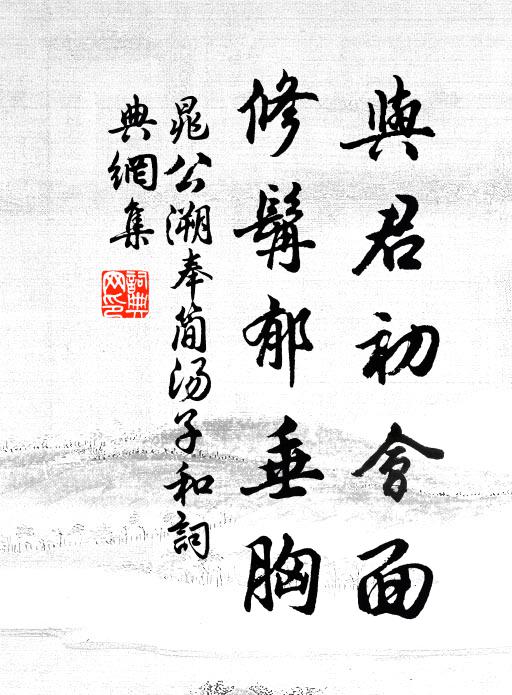 與君初會面
修髯郁垂胸
晁公溯奉简汤子和詞
典網集
詞典
网印